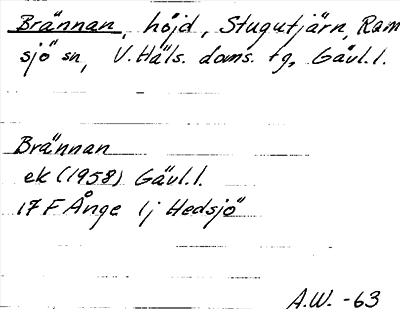 Brännan, höjd, Stugutjärn, Ram
sjö sn, V. Häls. doms. tg, Gävl. l.
Brännan
ek (1958) Gävl. l.
17 F Ånge 1j Hedsjö
A.W. -63